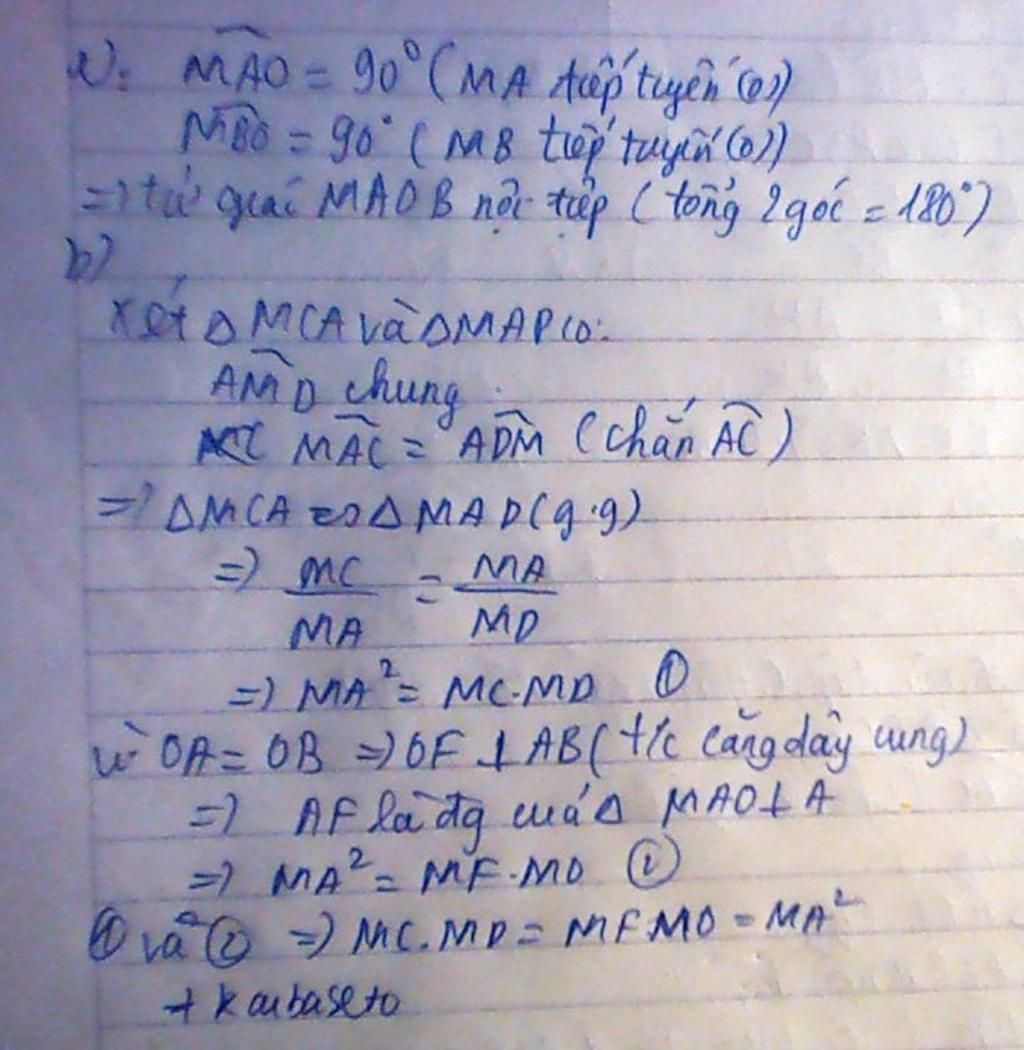 a): MAO = 90° (MA tiếp tuyến (O))
MBO = 90° (MB tiếp tuyến (O))
=> tứ giác MAOB nội tiếp (tổng 2 góc = 180°)
b)
Xét Δ MCA và Δ MAD có:
AMD chung
MAC = ADM (chắn AC)
=> Δ MCA ∽ Δ MAD (g.g)
=> MC/MA = MA/MD
=> MA² = MC.MD ①
vì OA = OB => OF ⊥ AB (t/c căng dây cung)
=> AF là đg cuả Δ MAO ⊥ A
=> MA² = MF.MO ②
① và ② => MC.MD = MF.MO = MA²
+ kaubaseto